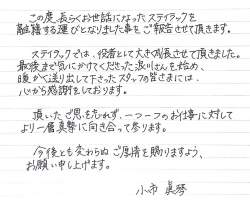 この度、長らくお世話になったステイラックを
離籍する運びとなりました事をご報告させて頂きます。
ステイラックでは、役者として大きく成長させて頂きました。
最後まで気にかけてくださった浪川さんを始め、
暖かく送り出して下さったスタッフの皆さまには、
心から感謝をしております。
頂いたご恩を忘れず、一つ一つのお仕事に対して
より一層真摯に向き合って参ります。
今後とも変わらぬご厚情を賜りますよう、
お願い申し上げます。
小市 眞琴